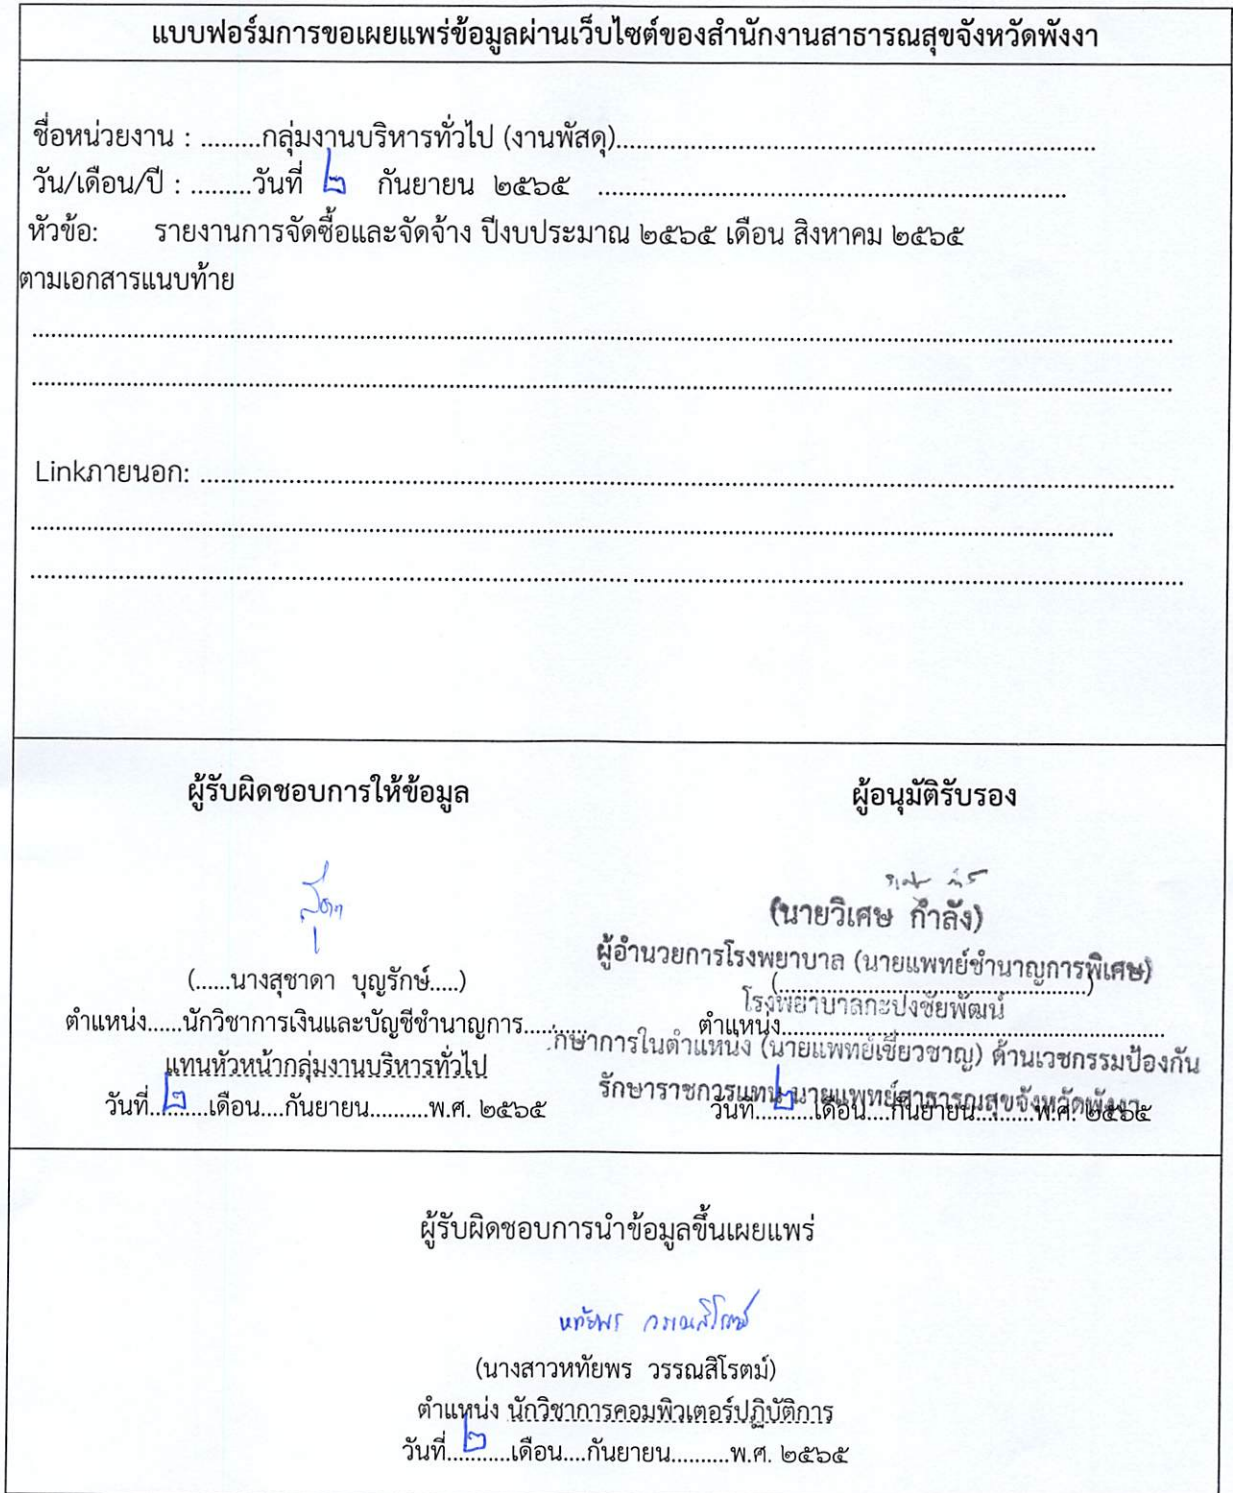 แบบฟอร์มการขอเผยแพร่ข้อมูลผ่านเว็บไซต์ของสำนักงานสาธารณสุขจังหวัดพังงา
ชื่อหน่วยงาน : .........กลุ่มงานบริหารทั่วไป (งานพัสดุ)..........................................................................
วัน/เดือน/ปี : .........วันที่ ๒ กันยายน ๒๕๖๕ ........................................................................
หัวข้อ: รายงานการจัดซื้อและจัดจ้าง ปีงบประมาณ ๒๕๖๕ เดือน สิงหาคม ๒๕๖๕
ตามเอกสารแนบท้าย
Linkภายนอก: ..........................................................................
ผู้รับผิดชอบการให้ข้อมูล
สุชาดา
(......นางสุชาดา บุญรักษ์.....)
ตำแหน่ง......นักวิชาการเงินและบัญชีชำนาญการ...........
แทนหัวหน้ากลุ่มงานบริหารทั่วไป
วันที่...๒...เดือน....กันยายน..........พ.ศ. ๒๕๖๕
ผู้อนุมัติรับรอง
(นายวิเศษ กำลัง)
ผู้อำนวยการโรงพยาบาล (นายแพทย์ชำนาญการพิเศษ)
(................................................)
โรงพยาบาลกะปงชัยพัฒน์
ตำแหน่ง..........................................................
กษาการในตำแหน่ง (นายแพทย์เชี่ยวชาญ) ด้านเวชกรรมป้องกัน
รักษาราชการแทน นายแพทย์สาธารณสุขจังหวัดพังงา
วันที่....๒....เดือน....กันยายน..........พ.ศ. ๒๕๖๕
ผู้รับผิดชอบการนำข้อมูลขึ้นเผยแพร่
หทัยพร วรรณสิโรตม์
(นางสาวหทัยพร วรรณสิโรตม์)
ตำแหน่ง นักวิชาการคอมพิวเตอร์ปฏิบัติการ
วันที่....๒....เดือน....กันยายน..........พ.ศ. ๒๕๖๕